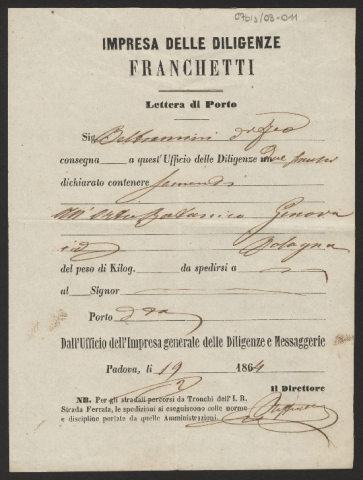 07bis/03-011
IMPRESA DELLE DILIGENZE
FRANCHETTI
Lettera di Porto
Sig.
consegna a quest' Ufficio delle Diligenze
dichiarato contenere
All' Orto Botanico Genova
id Bologna
del peso di Kilog. da spedirsi a
al Signor
Porto
Dall'Ufficio dell'Impresa generale delle Diligenze e Messaggerie
Padova, li 19 1864
2
Il Direttore
NB. Per gli stradali percorsi da Tronchi dell'I. R.
Strada Ferrata, le spedizioni si eseguiscono colle norme
e discipline portate da quelle Amministrazioni.